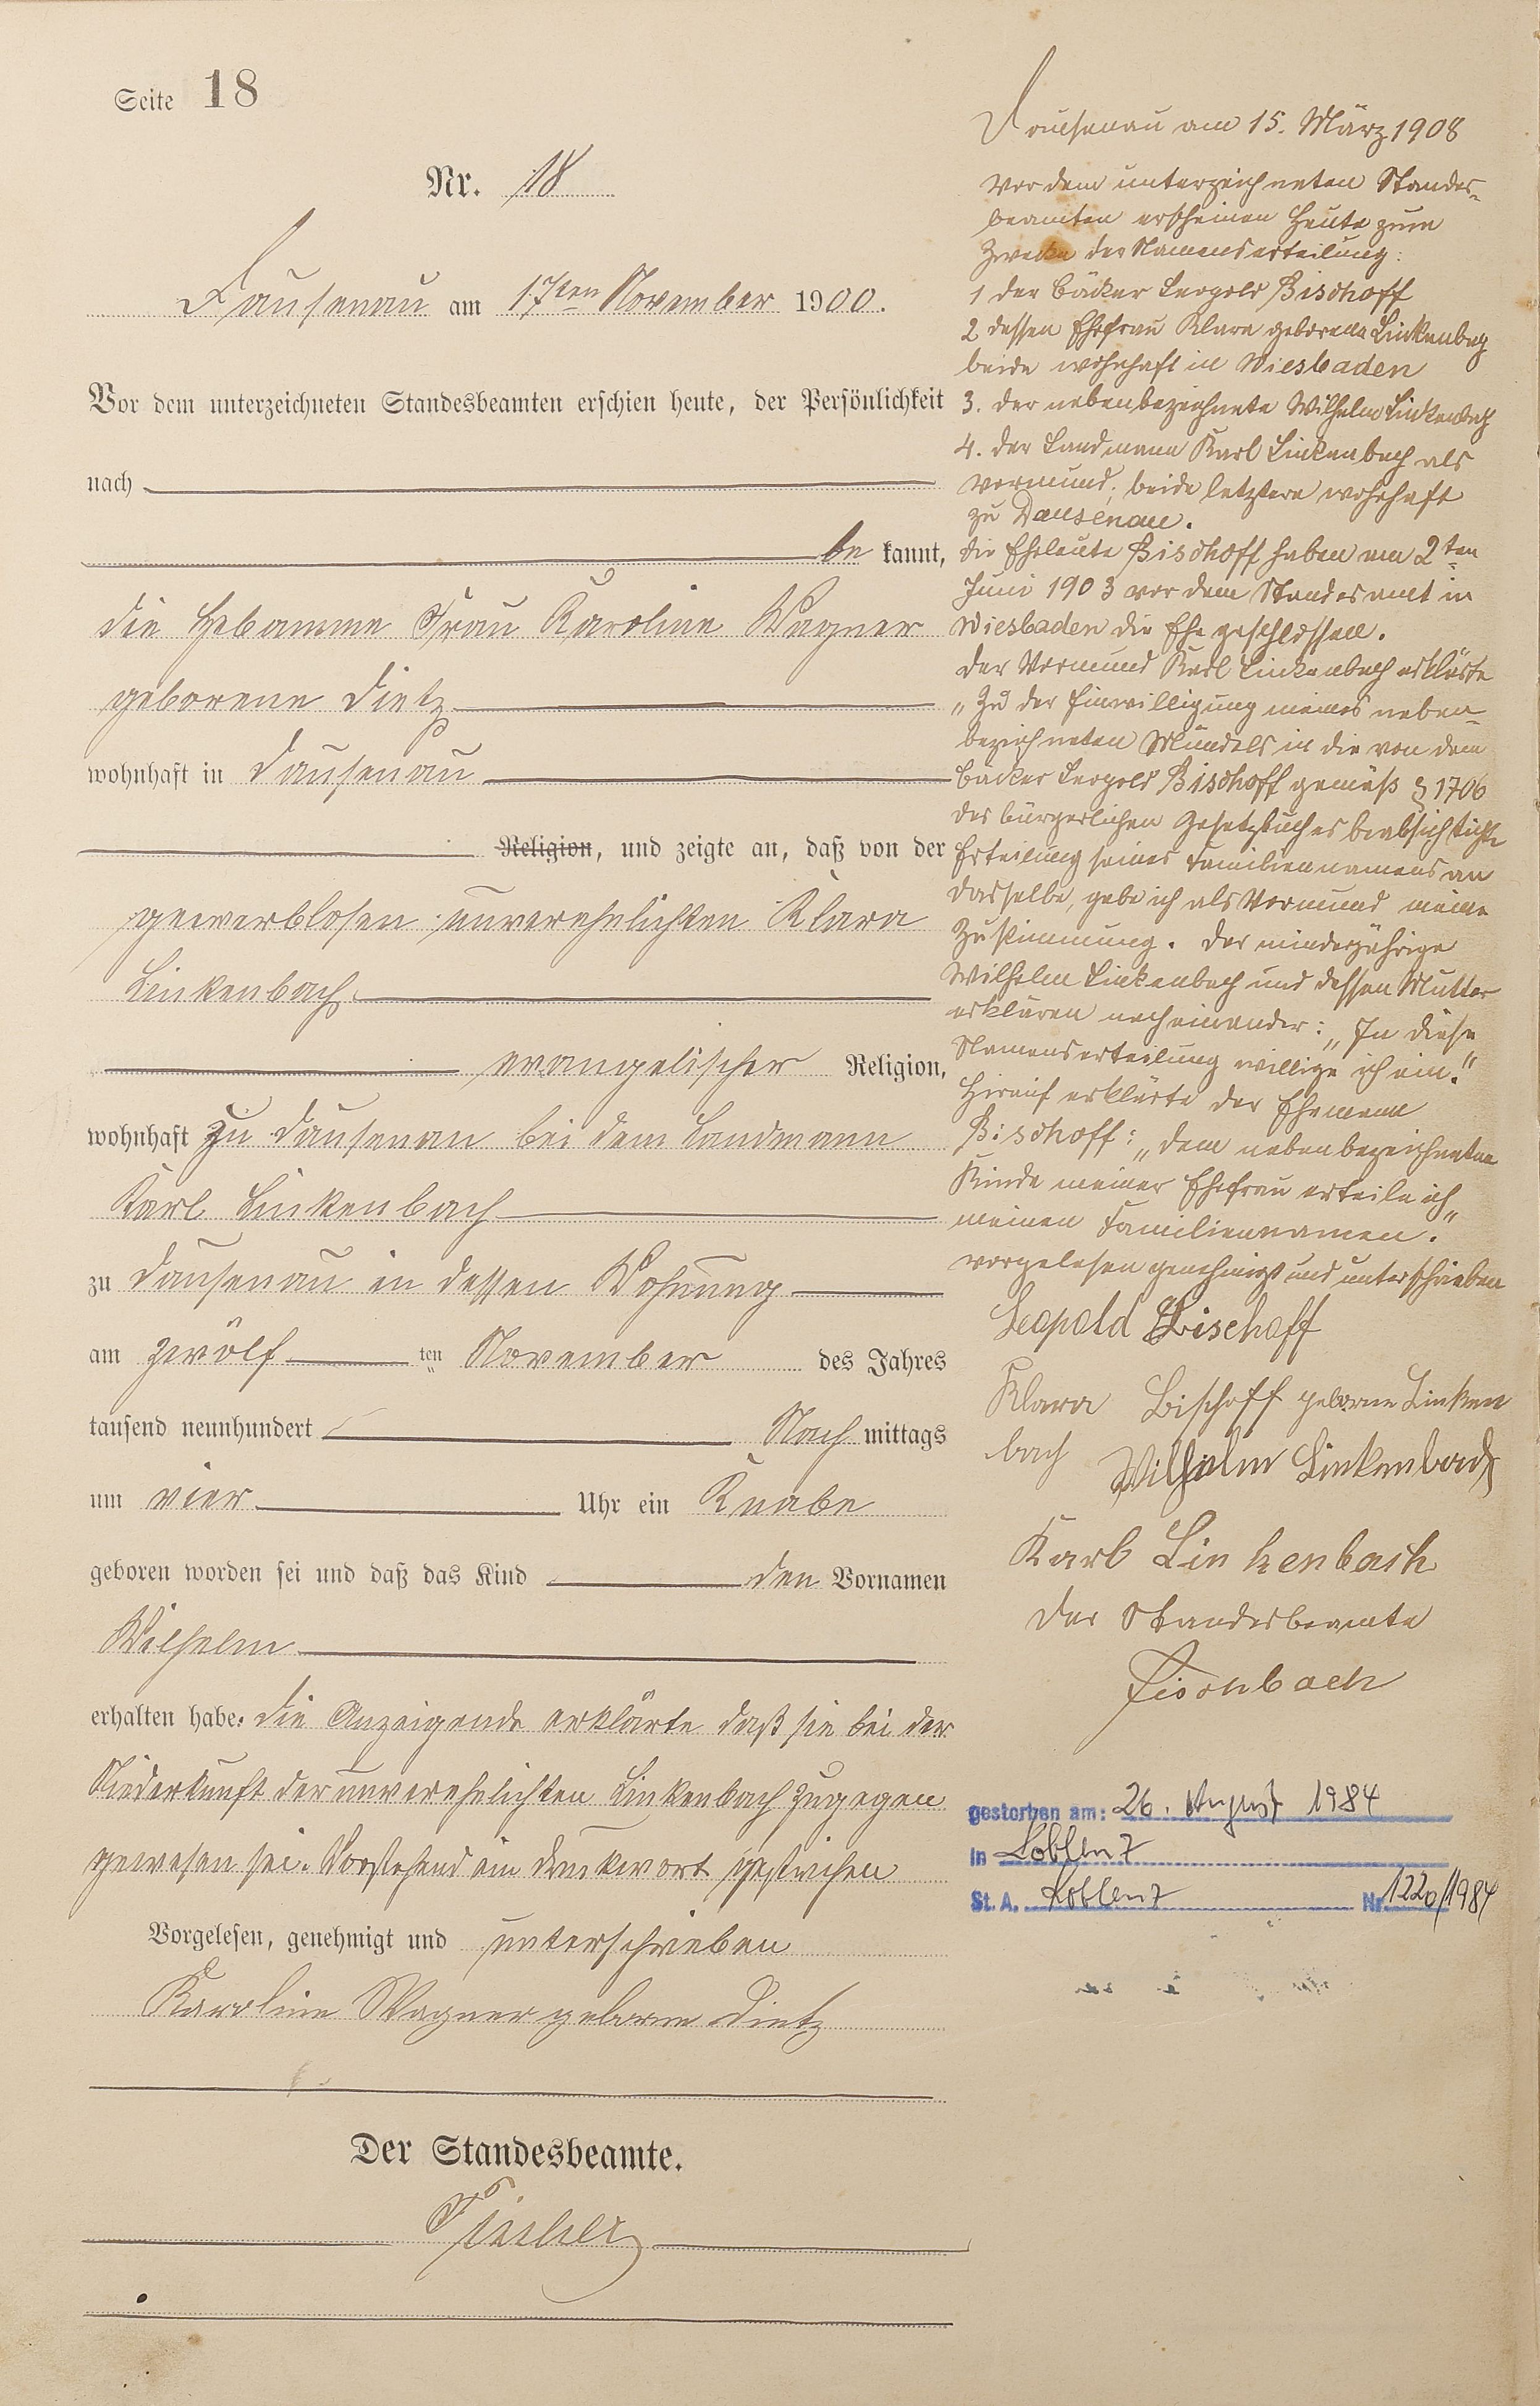 Seite 18
Nr. 18
Dausenau am 17ten November 1900.
Vor dem unterzeichneten Standesbeamten erschien heute, der Persönlichkeit
nach
be kannt,
die Hebamme Frau Karoline Wagner
geborene Dietz
wohnhaft in Dausenau
Religion, und zeigte an, daß von der
gewerblosen unverehelichten Klara
Linkenbach
evangelischer Religion,
wohnhaft zu Dausenau bei dem Landmann
Karl Linkenbach
zu Dausenau in dessen Wohnung
am zwölf ten November des Jahres
tausend neunhundert Nach mittags
um vier Uhr ein Knabe
geboren worden sei und daß das Kind den Vornamen
Wilhelm
erhalten habe. Die Anzeigende erklärte daß sie bei der
Niederkunft der unverehelichten Linkenbach zugegen
gewesen sei. Vorstehend ein Druckwort gestrichen
Vorgelesen, genehmigt und unterschrieben
Karoline Wagner geborne Dietz
Der Standesbeamte.
Dausenau am 15. März 1908
Vor dem unterzeichneten Standes-
beamten erscheinen heute zum
Zwecke der Namenserteilung:
1 der Bäcker Leopold Bischoff
2 dessen Ehefrau Klara geborene Linkenbach
beide wohnhaft in Wiesbaden
3. der nebenbezeichnete Wilhelm Linkenbach
4. der Landmann Karl Linkenbach als
Vormund, beide letztere wohnhaft
zu Dausenau.
Die Eheleute Bischoff haben am 2ten
Juni 1903 vor dem Standesamt in
Wiesbaden die Ehe geschlossen.
Der Vormund Karl Linkenbach erklärte
„Zu der Einwilligung meines neben-
bezeichneten Mündels in die von dem
Bäcker Leopold Bischoff gemäß § 1706
des bürgerlichen Gesetzbuches beabsichtigte
Erteilung seines Familiennamens an
dasselbe, gebe ich als Vormund meine
Zustimmung. Der minderjährige
Wilhelm Linkenbach und dessen Mutter
erklären nacheinander: „In diese
Namenserteilung willige ich ein."
Hirauf erklärte der Ehemann
Bischoff: „Dem nebenbezeichneten
Kinde meiner Ehefrau erteile ich
meinen Familiennamen."
vorgelesen genehmigt und unterschrieben
Leopold Bischoff
Klara Bischoff geborne Linken
bach Wilhelm Linkenbach
Karl Linkenbach
Der Standesbeamte
Fischbach
gestorben am: 26. August 1984
in Koblenz
St. A. Koblenz Nr. 1220/1984